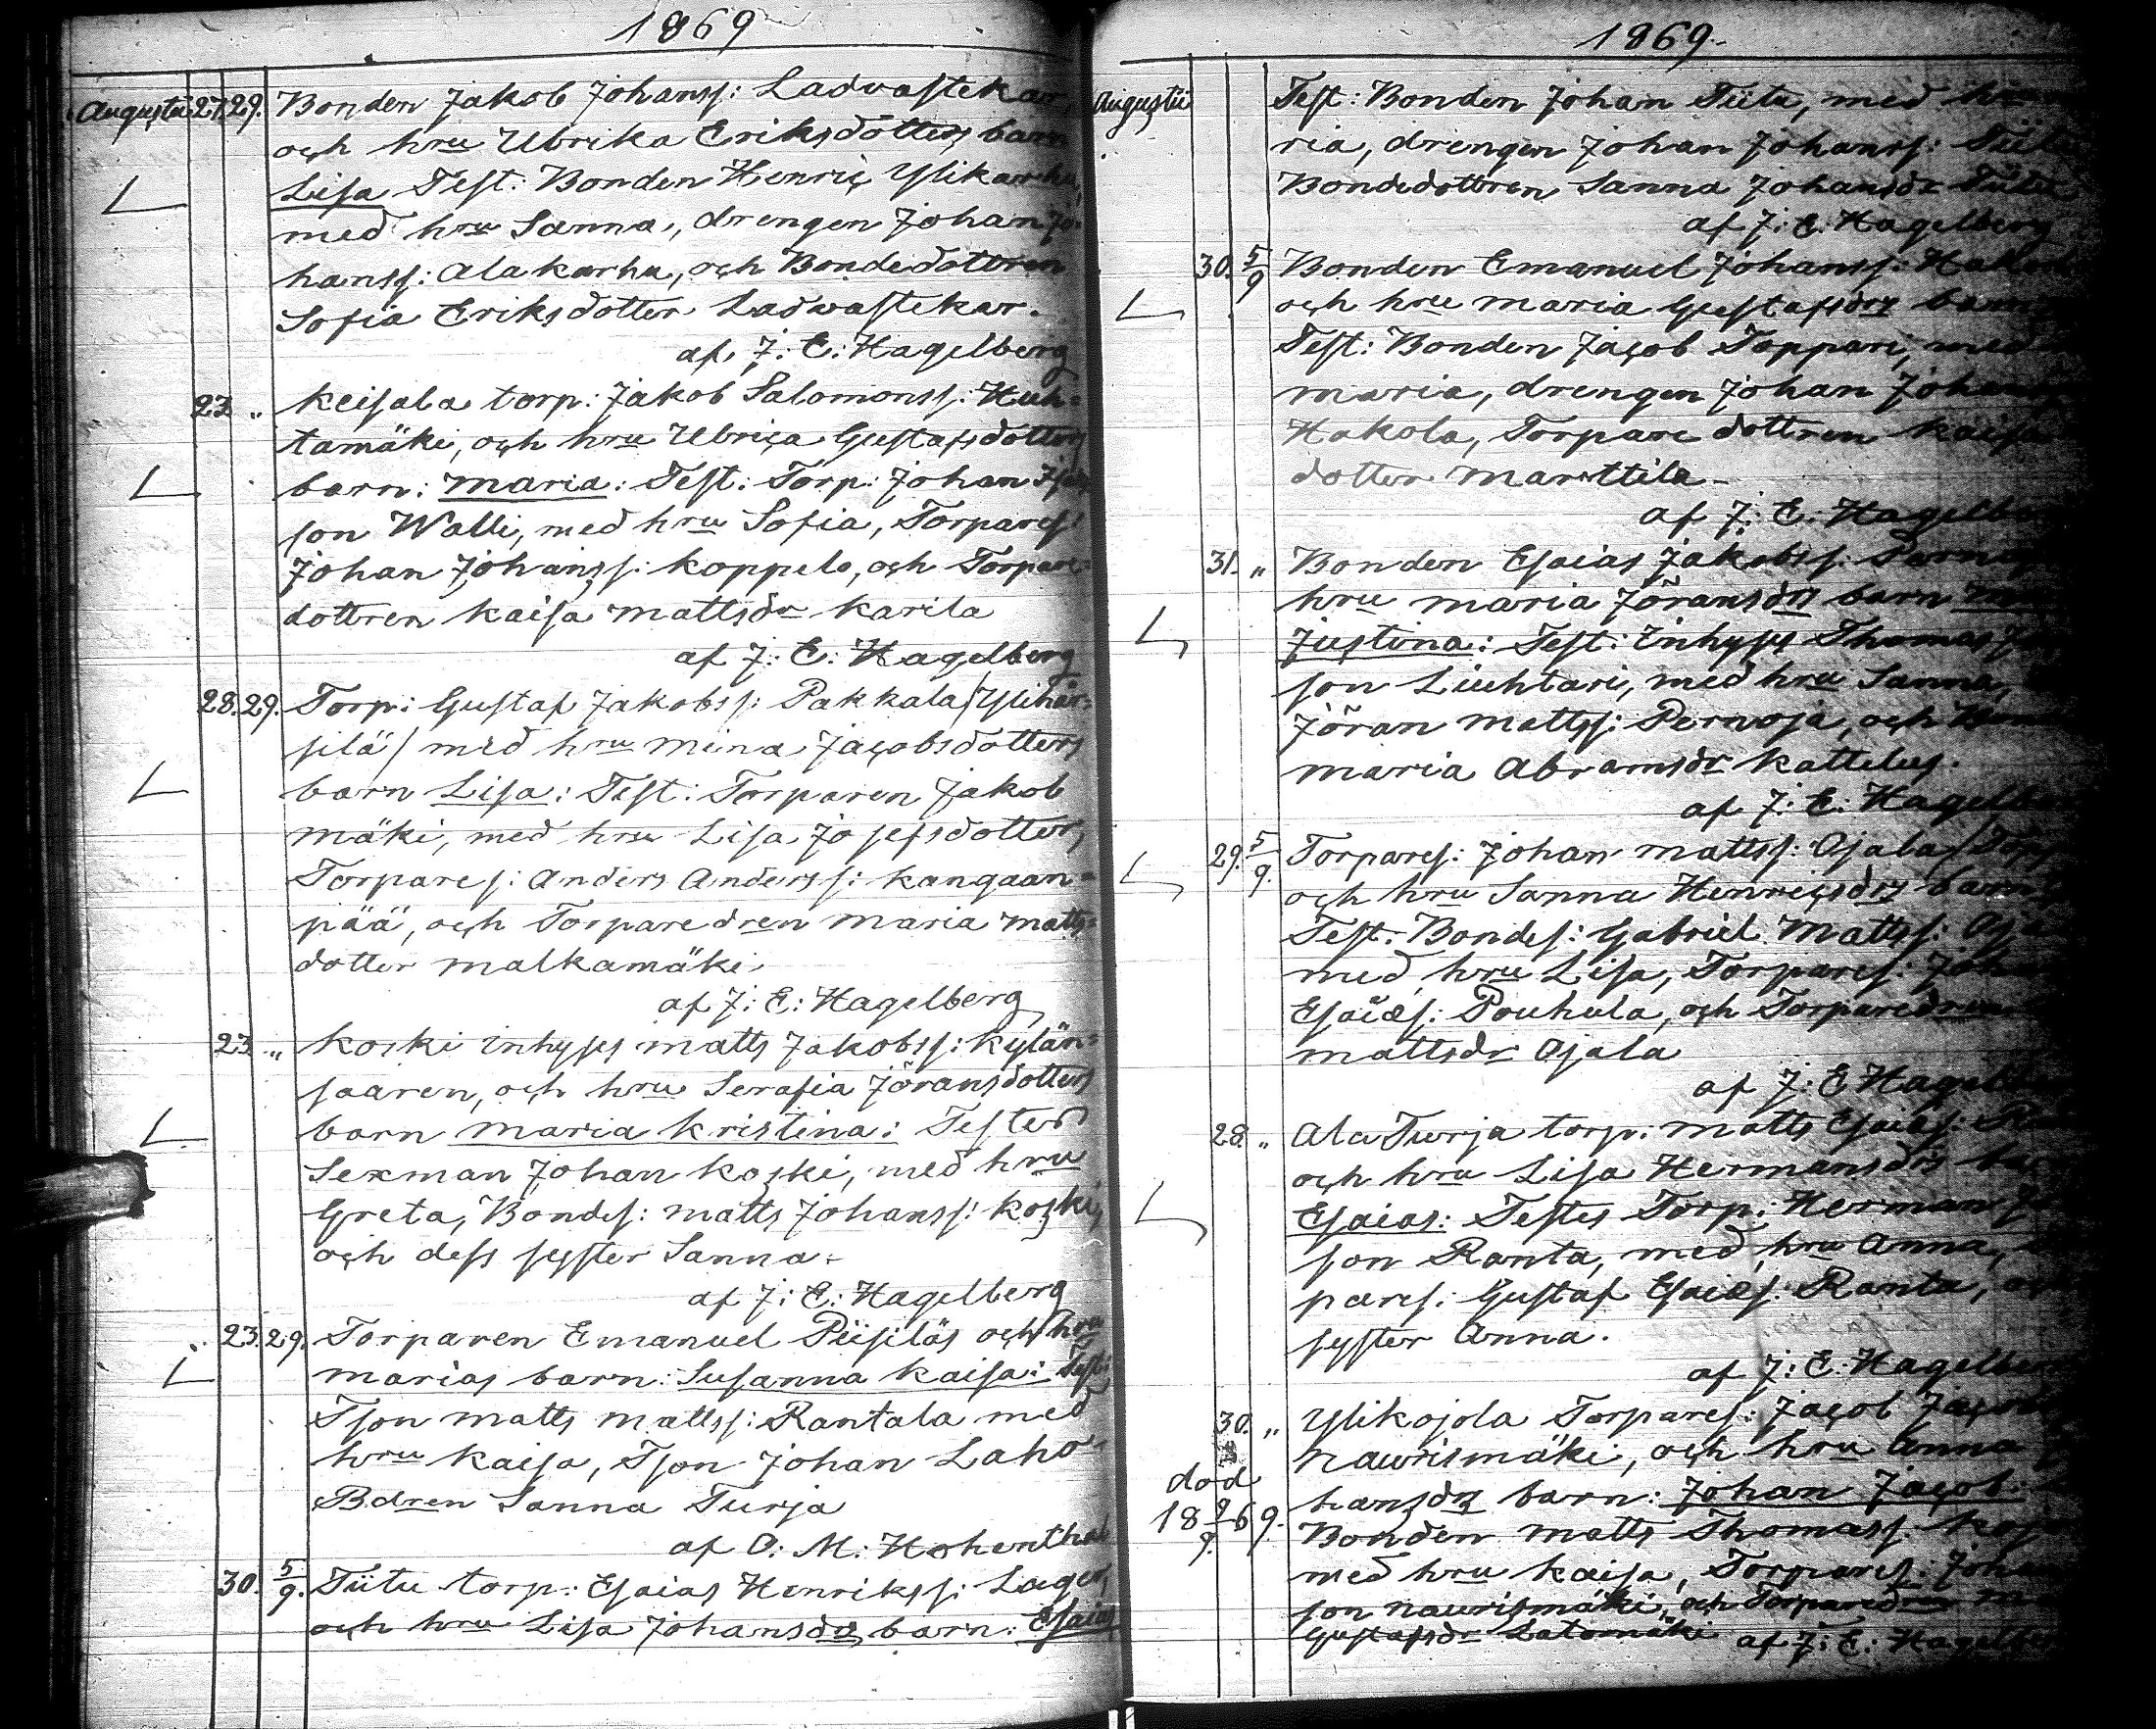 1869
Augustii 27. 29. Bonden Jakob Johanss: Ladvastekar,
och hru Ulrika Eriksdotters barn
Lisa Test: Bonden Henric Ylikarhu,
med hru Sanna, drengen Johan Jo-
hanss: Alakarhu, och Bondedottren
Sofia Eriksdotter Ladwastekar.
af J: E: Hagelberg
23 „ Keisala torp: Jakob Salomonss: Huh=
tamäki, och hru Ulrica Gustafsdotters
barn: Maria: Test: Torp: Johan
son Walli, med hru Sofia, Torpares:
Johan Johanss: Koppelo, och Torpare=
dottren Kaisa Mattsdr Karila
af J: E: Hagelberg
28. 29. Torp: Gustaf Jakobss: Pakkala /Ylihär-
silä/ med hru Mina Jacobsdotters
barn Lisa: Test: Torparen Jakob
Mäki, med hru Lisa Josefsdotter,
Torpares: Anders Anderss: Kangaan=
pää, och Torparedren Maria Matts=
dotter Malkamäki.
af J: E: Hagelberg
23 „ Koski inhyses Matts Jakobss: Kylän=
saaren, och hru Serafia Jöransdotters
barn Maria Kristina: Testes
Sexman Johan Koski, med hru
Greta, Bondes: Matts Johanss: Koski,
och dess syster Sanna.
af J: E: Hagelberg
23. 29. Torparen Emanuel Piisiläs och hru
Marias barn: Susanna Kaisa: Test:
Tson Matts Mattss: Rantala med
hru Kaisa, Tson Johan Laho
Bdren Sanna Turja
af O: M: Hohenthal
30. 5/9. Tiitu torp: Esaias Henrikss: Lager,
och hru Lisa Johansdrs barn: Esaias
1869.
Augustii Test: Bonden Johan Tiitu, med hru
ria, drengen Johan Johanss: Tiitu
Bondedottren Sanna Johansdr Tiitu
af J: E: Hagelberg
30. 5/9 Bonden Emanuel Johanss: Hakola
och hru Maria Gustafsdrs barn
Test: Bonden Jacob Toppari, med
Maria, drengen Johan
Hakola, Torpare dottren Kaisa
dotter Marttila.
af J: E: Hagelberg
31. „ Bonden Esaias Jakobss:
hru Maria Jöransdrs barn
Justina: Test: Inhyses Thomas
son Liuhtari, med hru Sanna,
Jöran Mattss: Pernoja, och
Maria Abramsdr Kattelus.
af J: E: Hagelberg
29. 5/9. Torpares: Johan Mattss: Ojala
och hru Sanna Henricsdrs barn
Test: Bondes: Gabriel Mattss:
med hru Lisa, Torpares:
Esaias: Pouhula, och Torparedren
Mattsdr Ojala
af J: E Hagelberg
28. „ Ala Turja torp: Matts Esaias:
och hru Lisa Hermansdrs
Esaias: Testes Torp: Herman
son Ranta, med hru Anna,
pares: Gustaf Esaias: Ranta,
syster Anna.
af J: E: Hagelberg
30. „ Ylikojola Torpares: Jacob
Naurismäki, och hru Anna
död hansdrs barn: Johan Jacob
18 9/9 69. Bonden Matts Thomass:
med hru Kaisa, Torpares:
son Naurismäki, och Torparedren
Gustafsdr Latomäki af J: E: Hagelberg